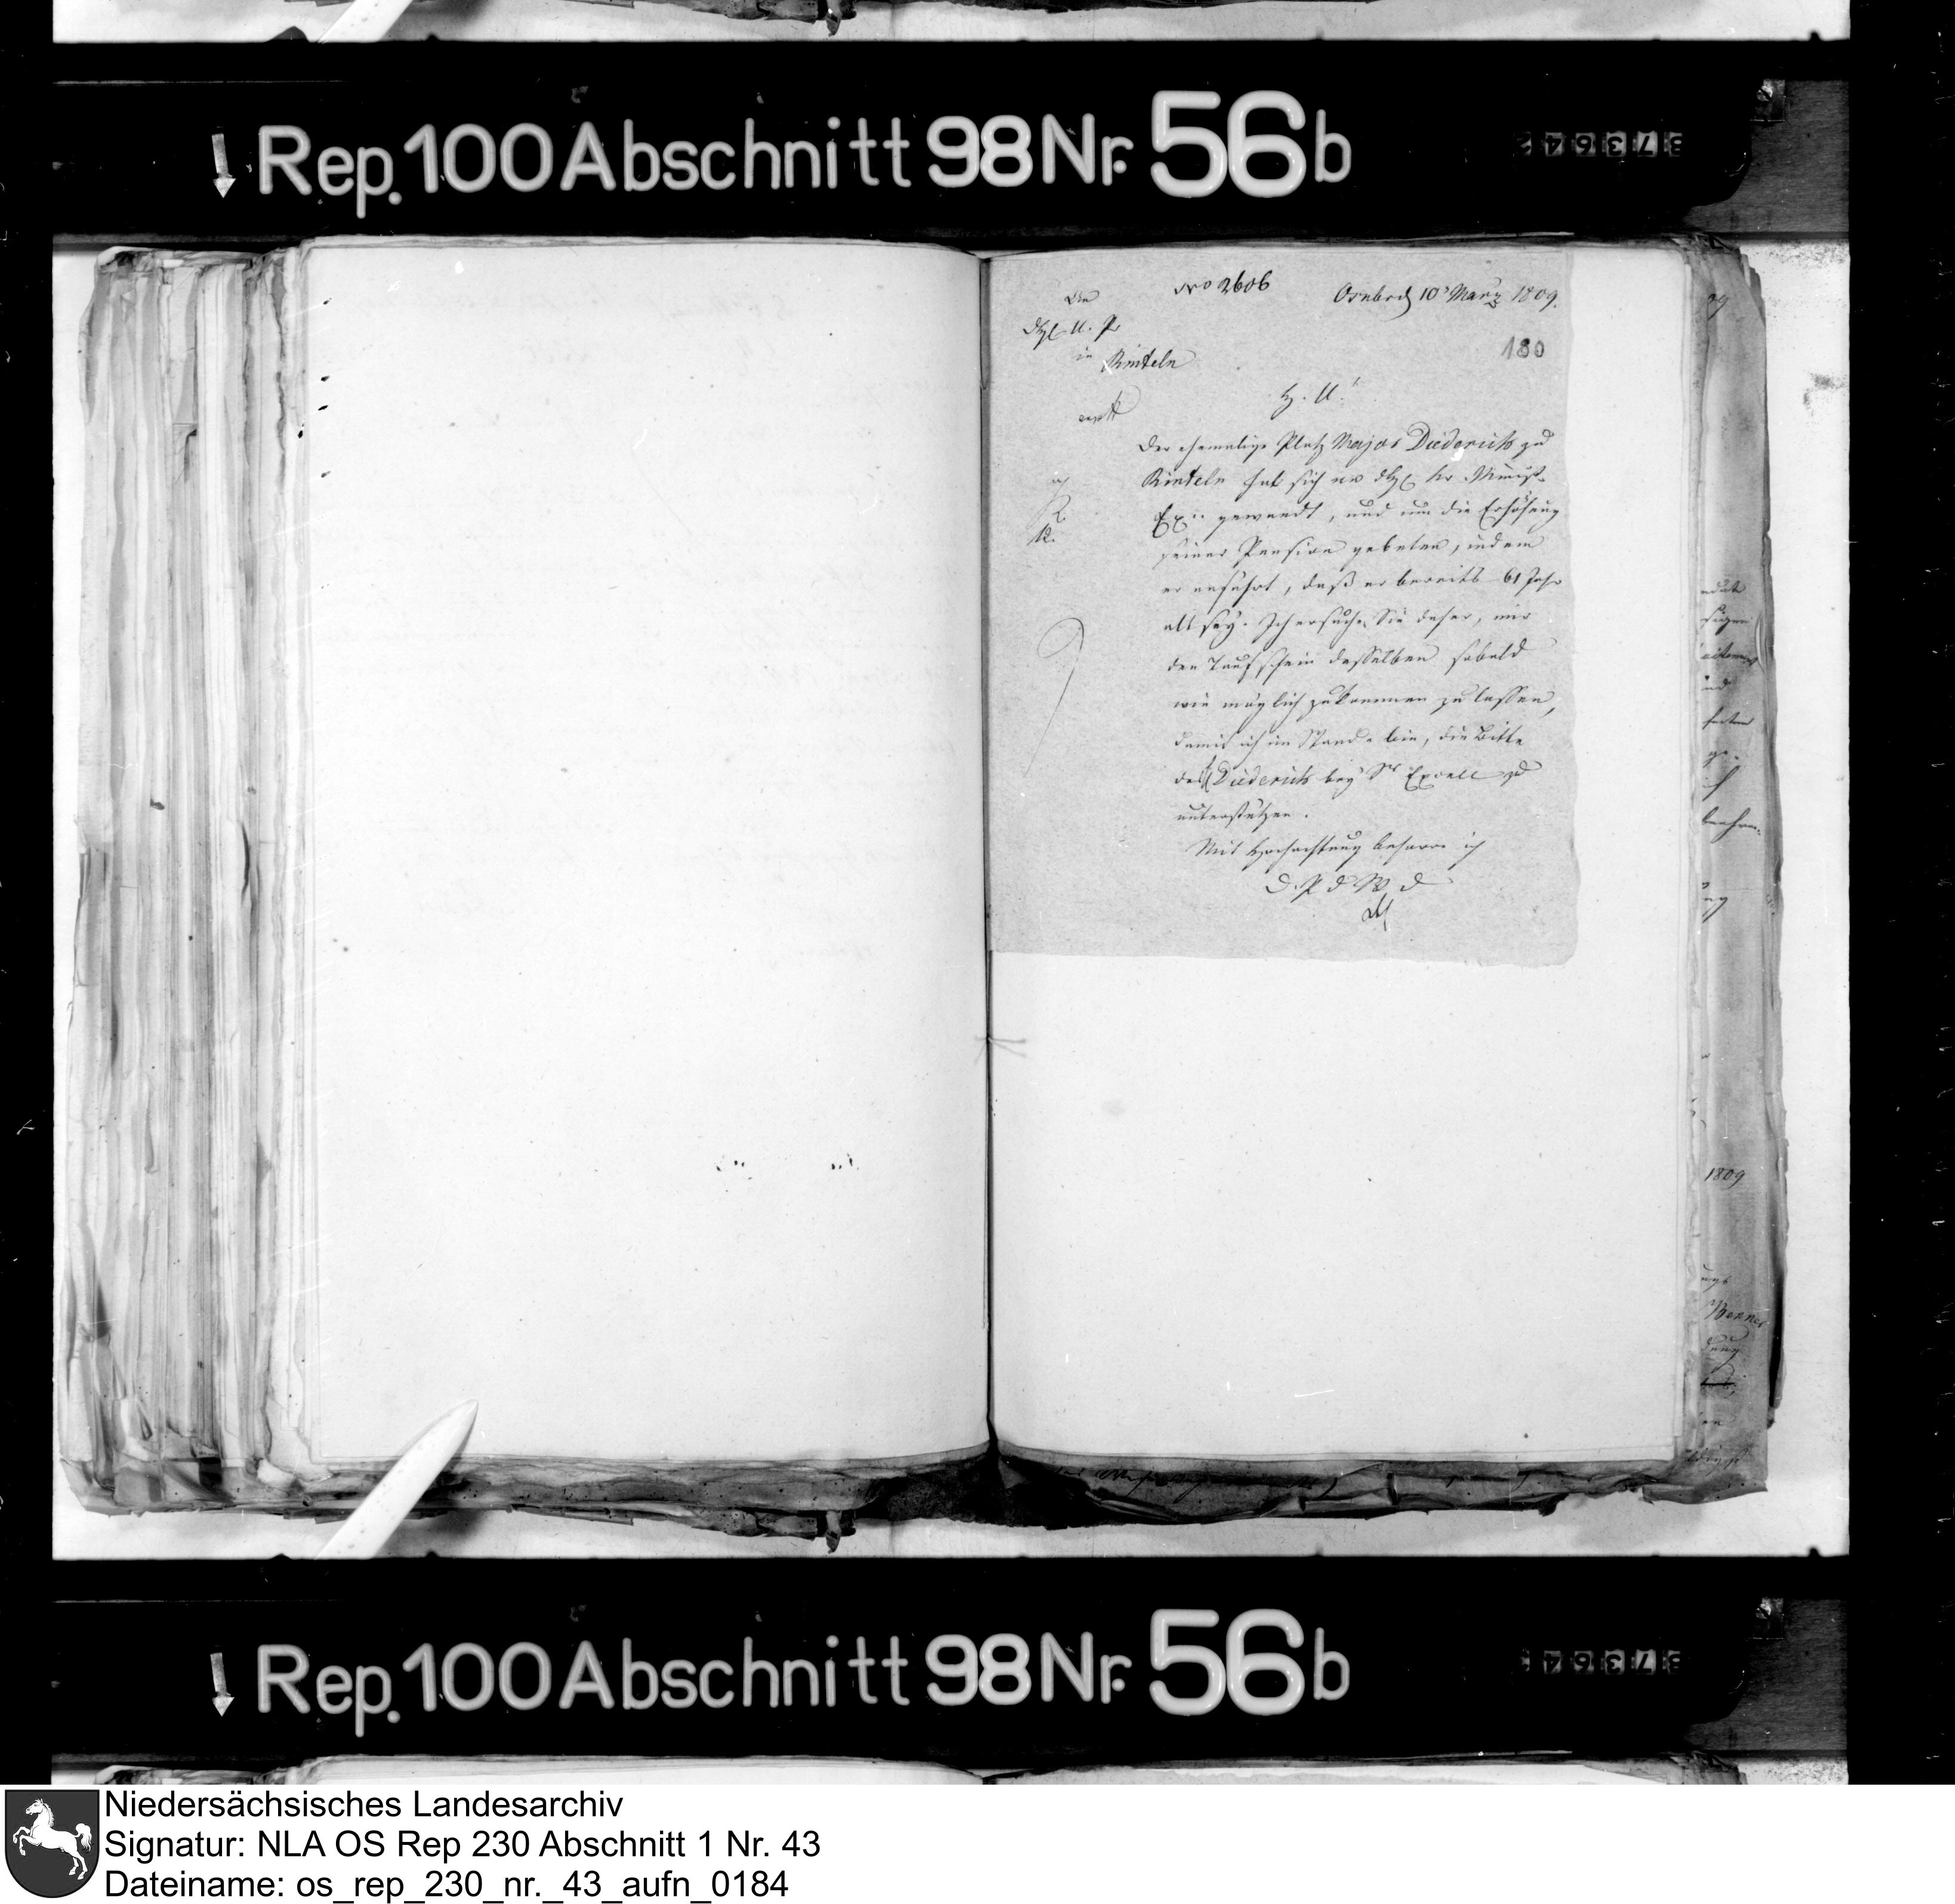 Rep. 100 Abschnitt 98 Nr. 56b
No 2606
Osnbrck 10n Marz 1809.
An
H. U. P.
in Rinteln
180
H. U!
Der ehemalige Platz Major Diederichs zu
Rinteln hat sich an des Hr Minist.
Exc. gewandt, und um die Erhöhung
seiner Pension gebeten, indem
er anführt, daß er bereits 61 Jahr
alt sey. Ich ersuche Sie daher, mir
den Taufschein desselben sobald
wie möglich zukommen zu lassen,
damit ich im Stande bin, die Bitte
des Diederichs bey Sr Excell zu
unterstützen.
Mit Hochachtung beharre ich
D. P. d W. D
1809
Rep. 100 Abschnitt 98 Nr. 56b
Niedersächsisches Landesarchiv
Signatur: NLA OS Rep 230 Abschnitt 1 Nr. 43
Dateiname: os_rep_230_nr._43_aufn_0184